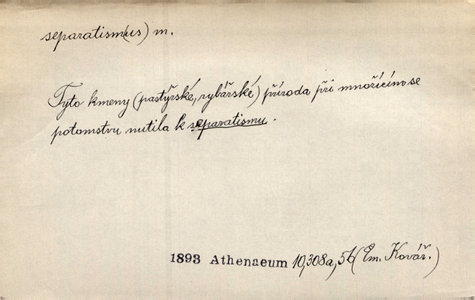 separatism(us) m.
Tyto kmeny (pastýřské, rybářské) příroda při množícím se
potomstvu nutila k separatismu.
1893 Athenaeum 10,308a,5b (Em. Kovář).